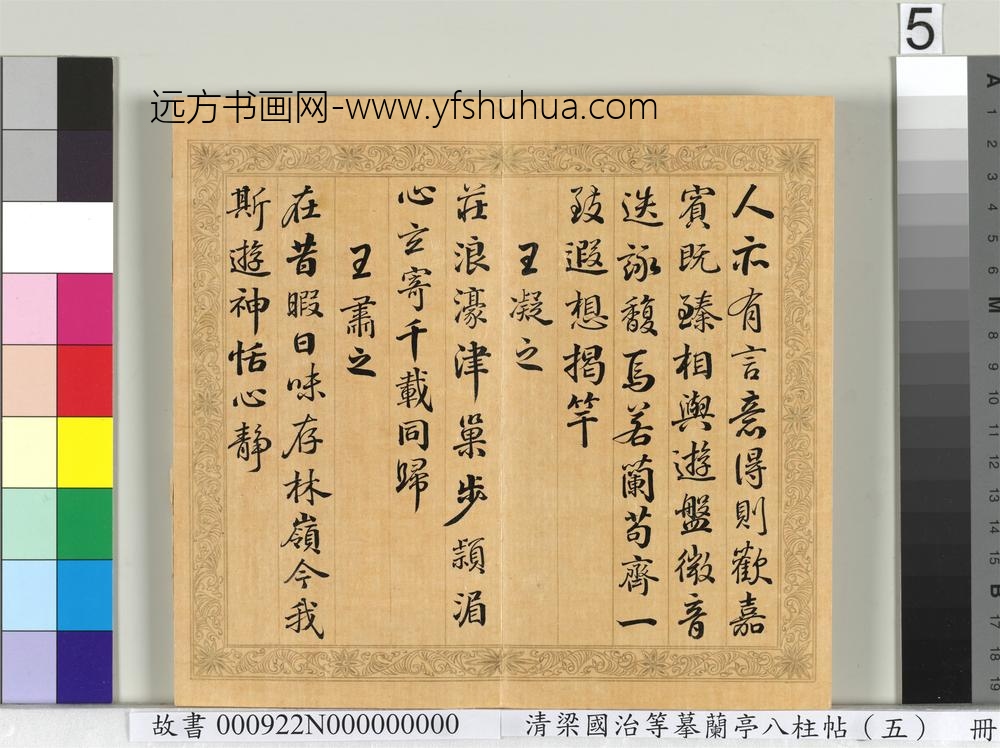 5
远方书画网-www.yfshuhua.com
人亦有言意得則歡嘉
賓既臻相與遊盤微音
迭詠馥焉若蘭苟齊一
致遐想揭竿
王凝之
莊浪濠津巢步潁湄
心立寄千載同歸
王肅之
在昔暇日味存林嶺今我
斯遊神怡心靜
A 1 2 3 4 5 6 M 8 9 10 11 12 13 14 15 B 17 18 19
故書 000922N000000000 清梁國治等摹蘭亭八柱帖（五） 冊